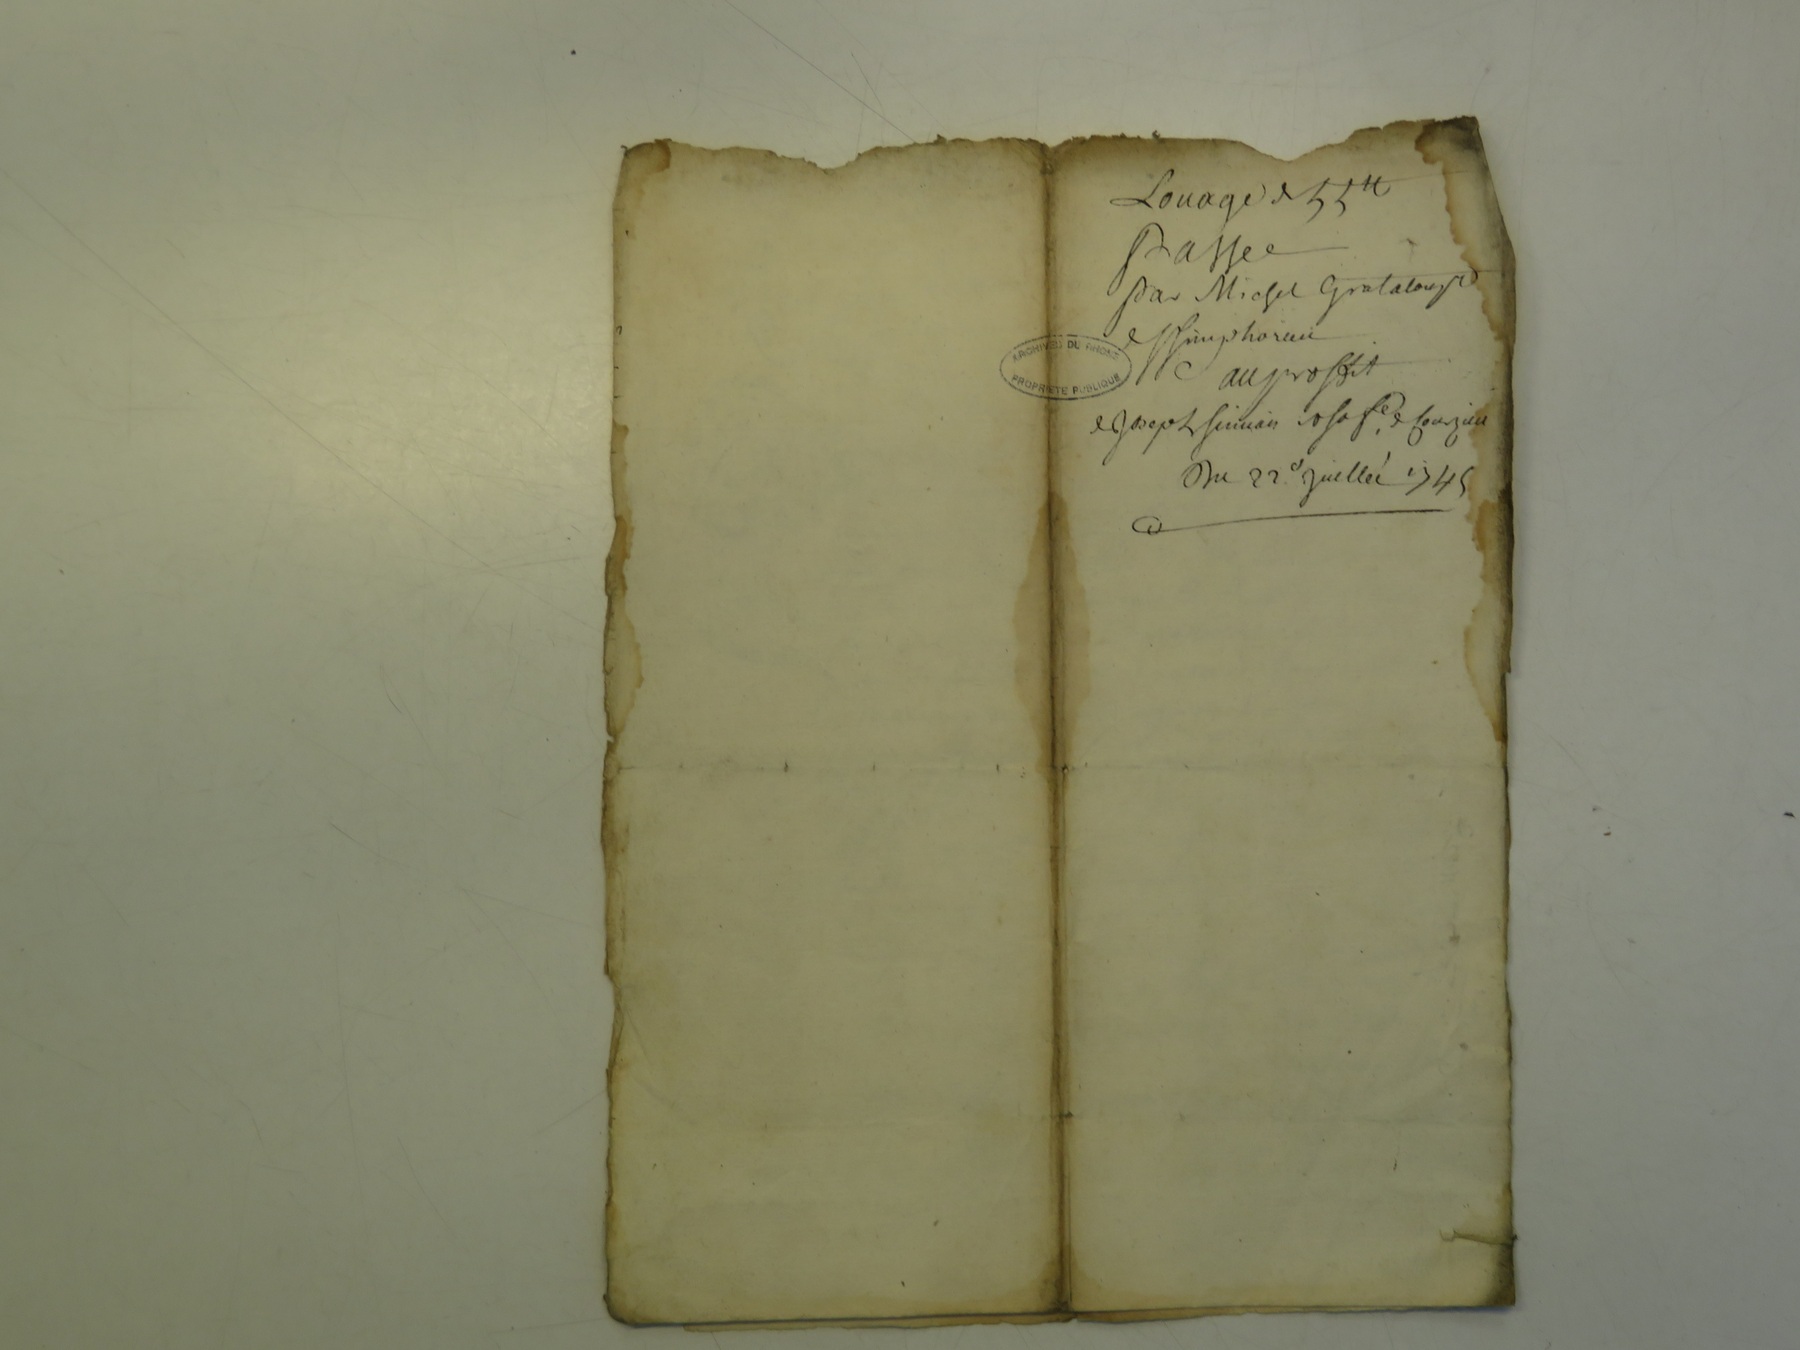 Louage de 55tt
Passee
Par Michel Grataloup
de St Simphorien
au proffit
de Joseph Simian de Courzieu
Du 22e Juillet 1745
ARCHIVES DU RHONE
PROPRIÉTÉ PUBLIQUE